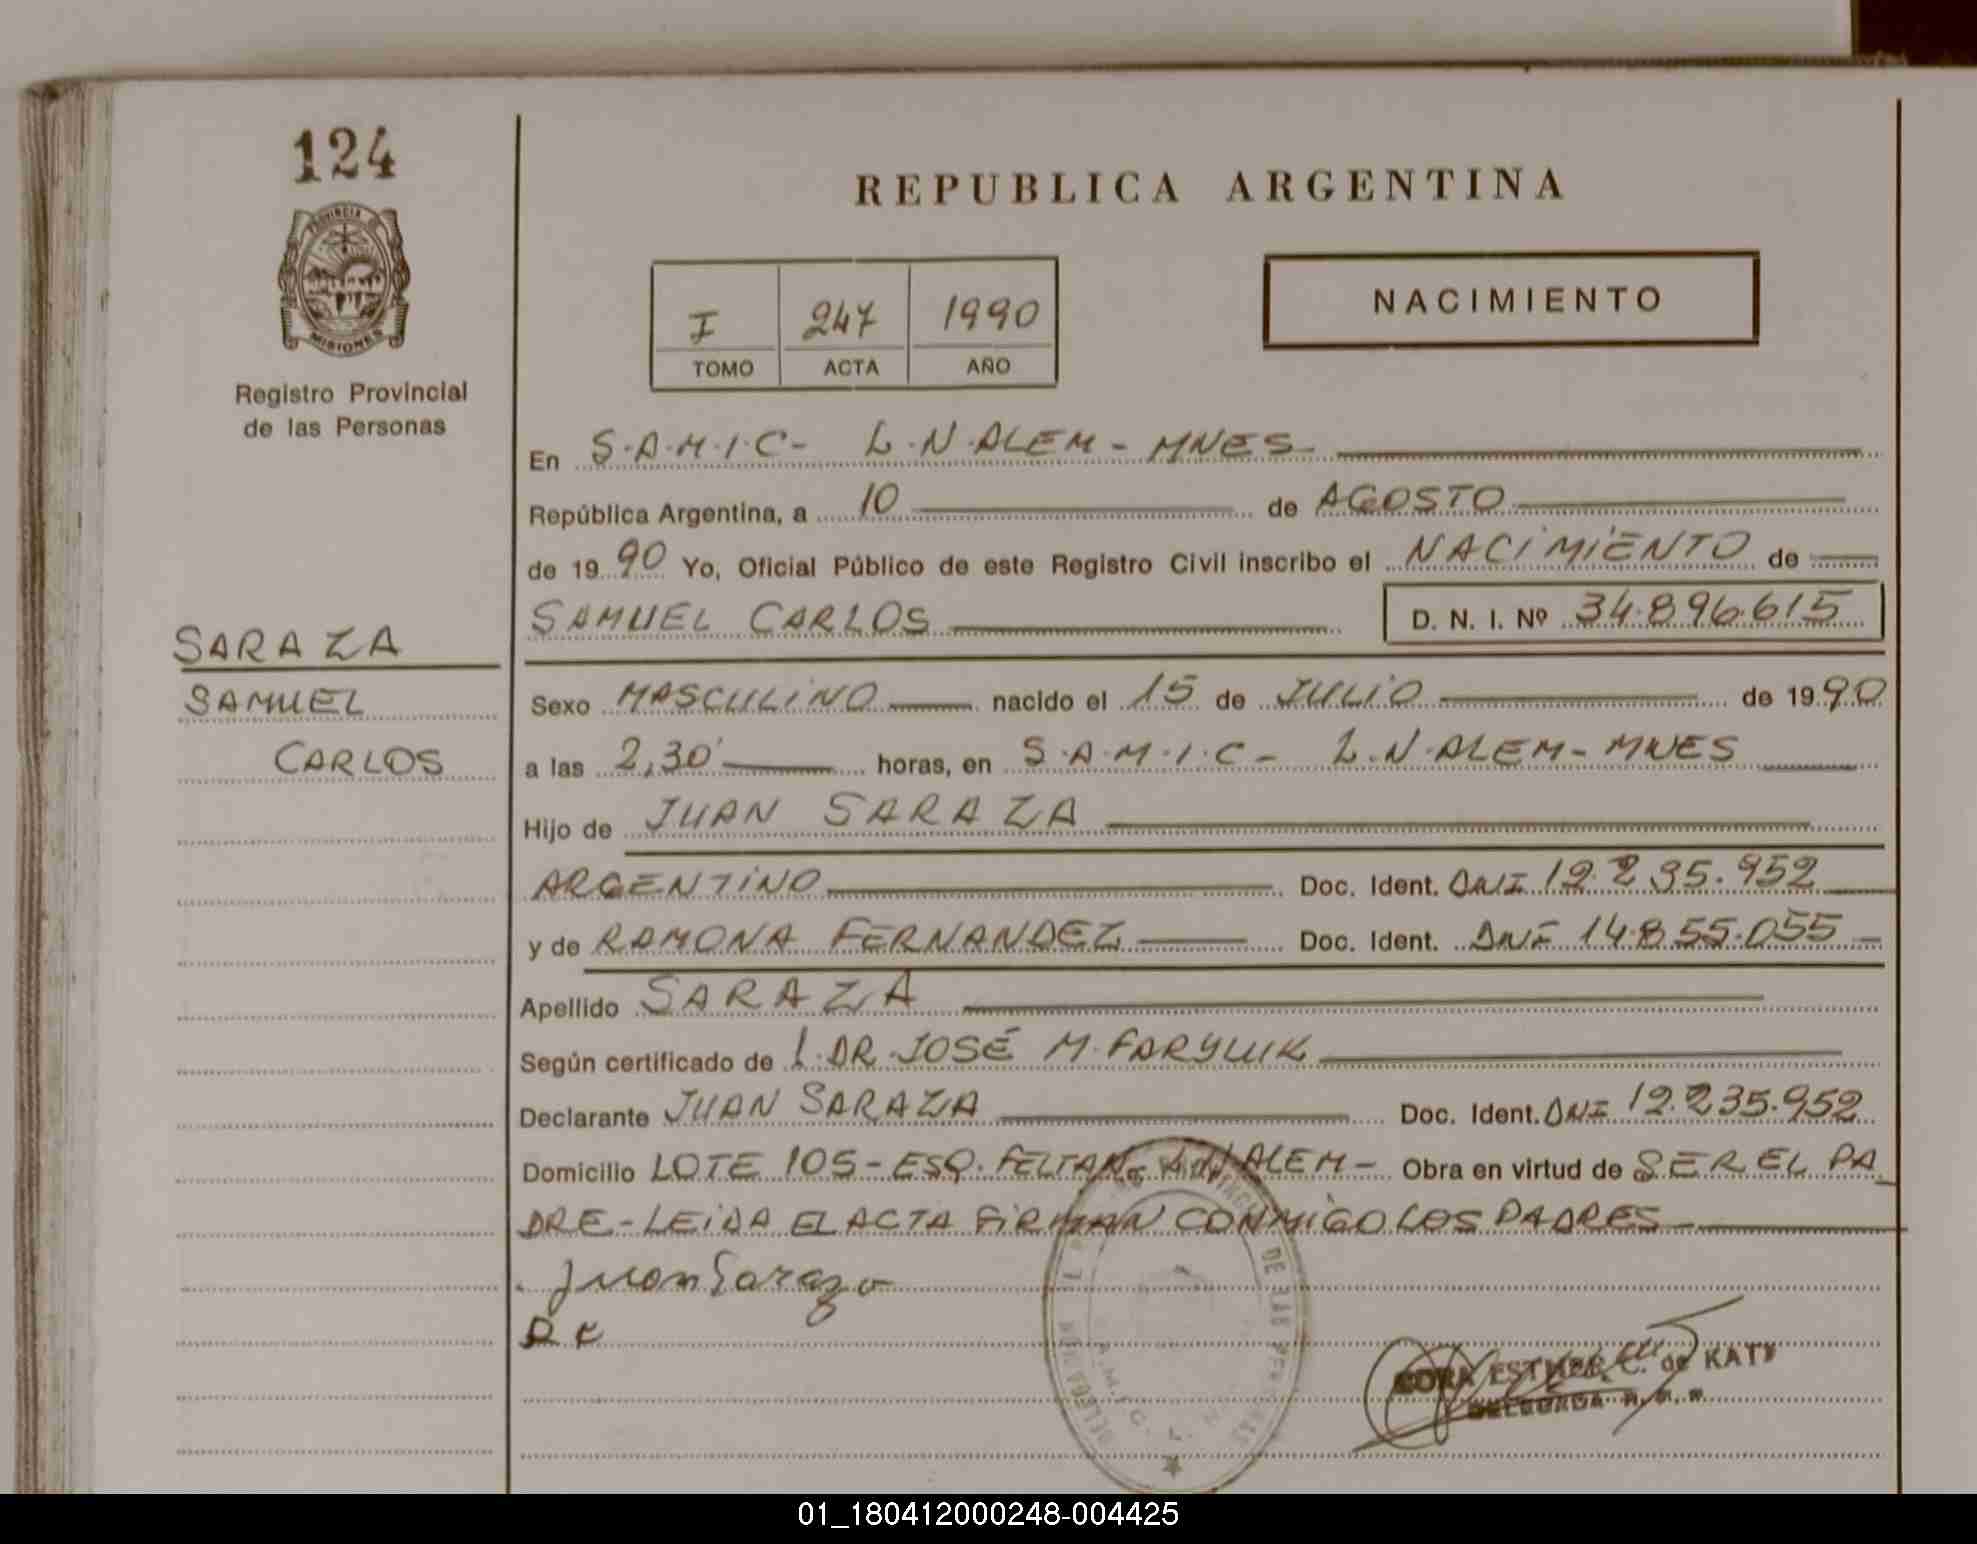 124
REPUBLICA ARGENTINA
PROVINCIA DE
MISIONES
Registro Provincial
de las Personas
I 247 1990
TOMO ACTA AÑO
NACIMIENTO
En S.A.M.I.C- L.N.ALEM - MNES
República Argentina, a 10 de AGOSTO
de 1990 Yo, Oficial Público de este Registro Civil inscribo el NACIMIENTO de
SAMUEL CARLOS D. N. I. Nº 34.896.615
SARAZA
SAMUEL
CARLOS
Sexo MASCULINO nacido el 15 de JULIO de 1990
a las 2,30 horas, en S.A.M.I.C - L.N.ALEM - MNES
Hijo de JUAN SARAZA
ARGENTINO Doc. Ident. DNI 12.235.952
y de RAMONA FERNANDEZ Doc. Ident. DNI 14.855.055
Apellido SARAZA
Según certificado de L.DR.JOSÉ M.FARYLUK
Declarante JUAN SARAZA Doc. Ident. DNI 12.235.952
Domicilio LOTE 105-ESQ.FELTAN L.N.ALEM- Obra en virtud de SER EL PA
DRE-LEIDA EL ACTA FIRMAN CONMIGO LOS PADRES
Juan Saraza
R F
ESTHER C. de KATZ
DELEGADA R. P. P.
01_180412000248-004425